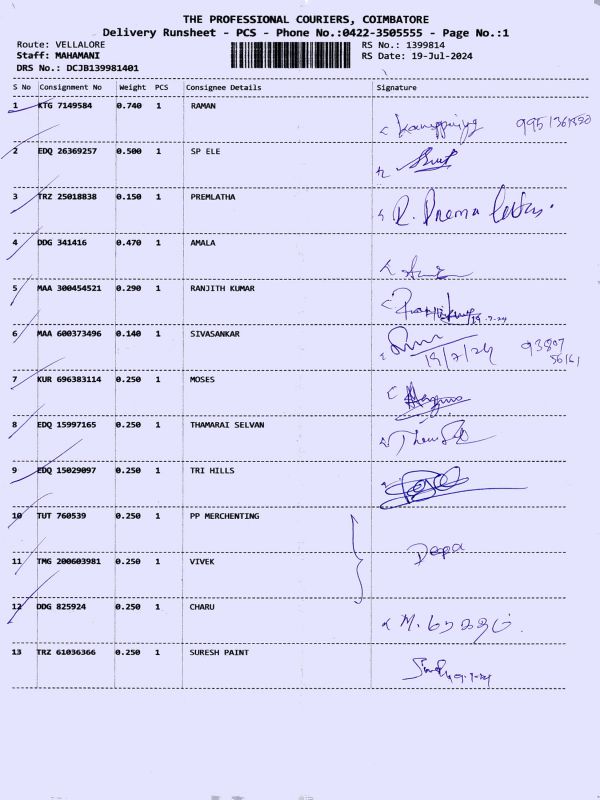 THE PROFESSIONAL COURIERS, COIMBATORE
Delivery Runsheet - PCS - Phone No.:0422-3505555 - Page No.:1
Route: VELLALORE RS No.: 1399814
Staff: MAHAMANI RS Date: 19-Jul-2024
DRS No.: DCJB139981401
S No Consignment No Weight PCS Consignee Details Signature
1 KTG 7149584 0.740 1 RAMAN
2 EDQ 26369257 0.500 1 SP ELE
3 TRZ 25018838 0.150 1 PREMLATHA
R. Prema
4 DDG 341416 0.470 1 AMALA
5 MAA 300454521 0.290 1 RANJITH KUMAR
19-7-24
6 MAA 600373496 0.140 1 SIVASANKAR
19/7/24 93807
56161
7 KUR 696383114 0.250 1 MOSES
8 EDQ 15997165 0.250 1 THAMARAI SELVAN
9 EDQ 15029097 0.250 1 TRI HILLS
10 TUT 760539 0.250 1 PP MERCHENTING
Deepa
11 TMG 200603981 0.250 1 VIVEK
12 DDG 825924 0.250 1 CHARU
13 TRZ 61036366 0.250 1 SURESH PAINT